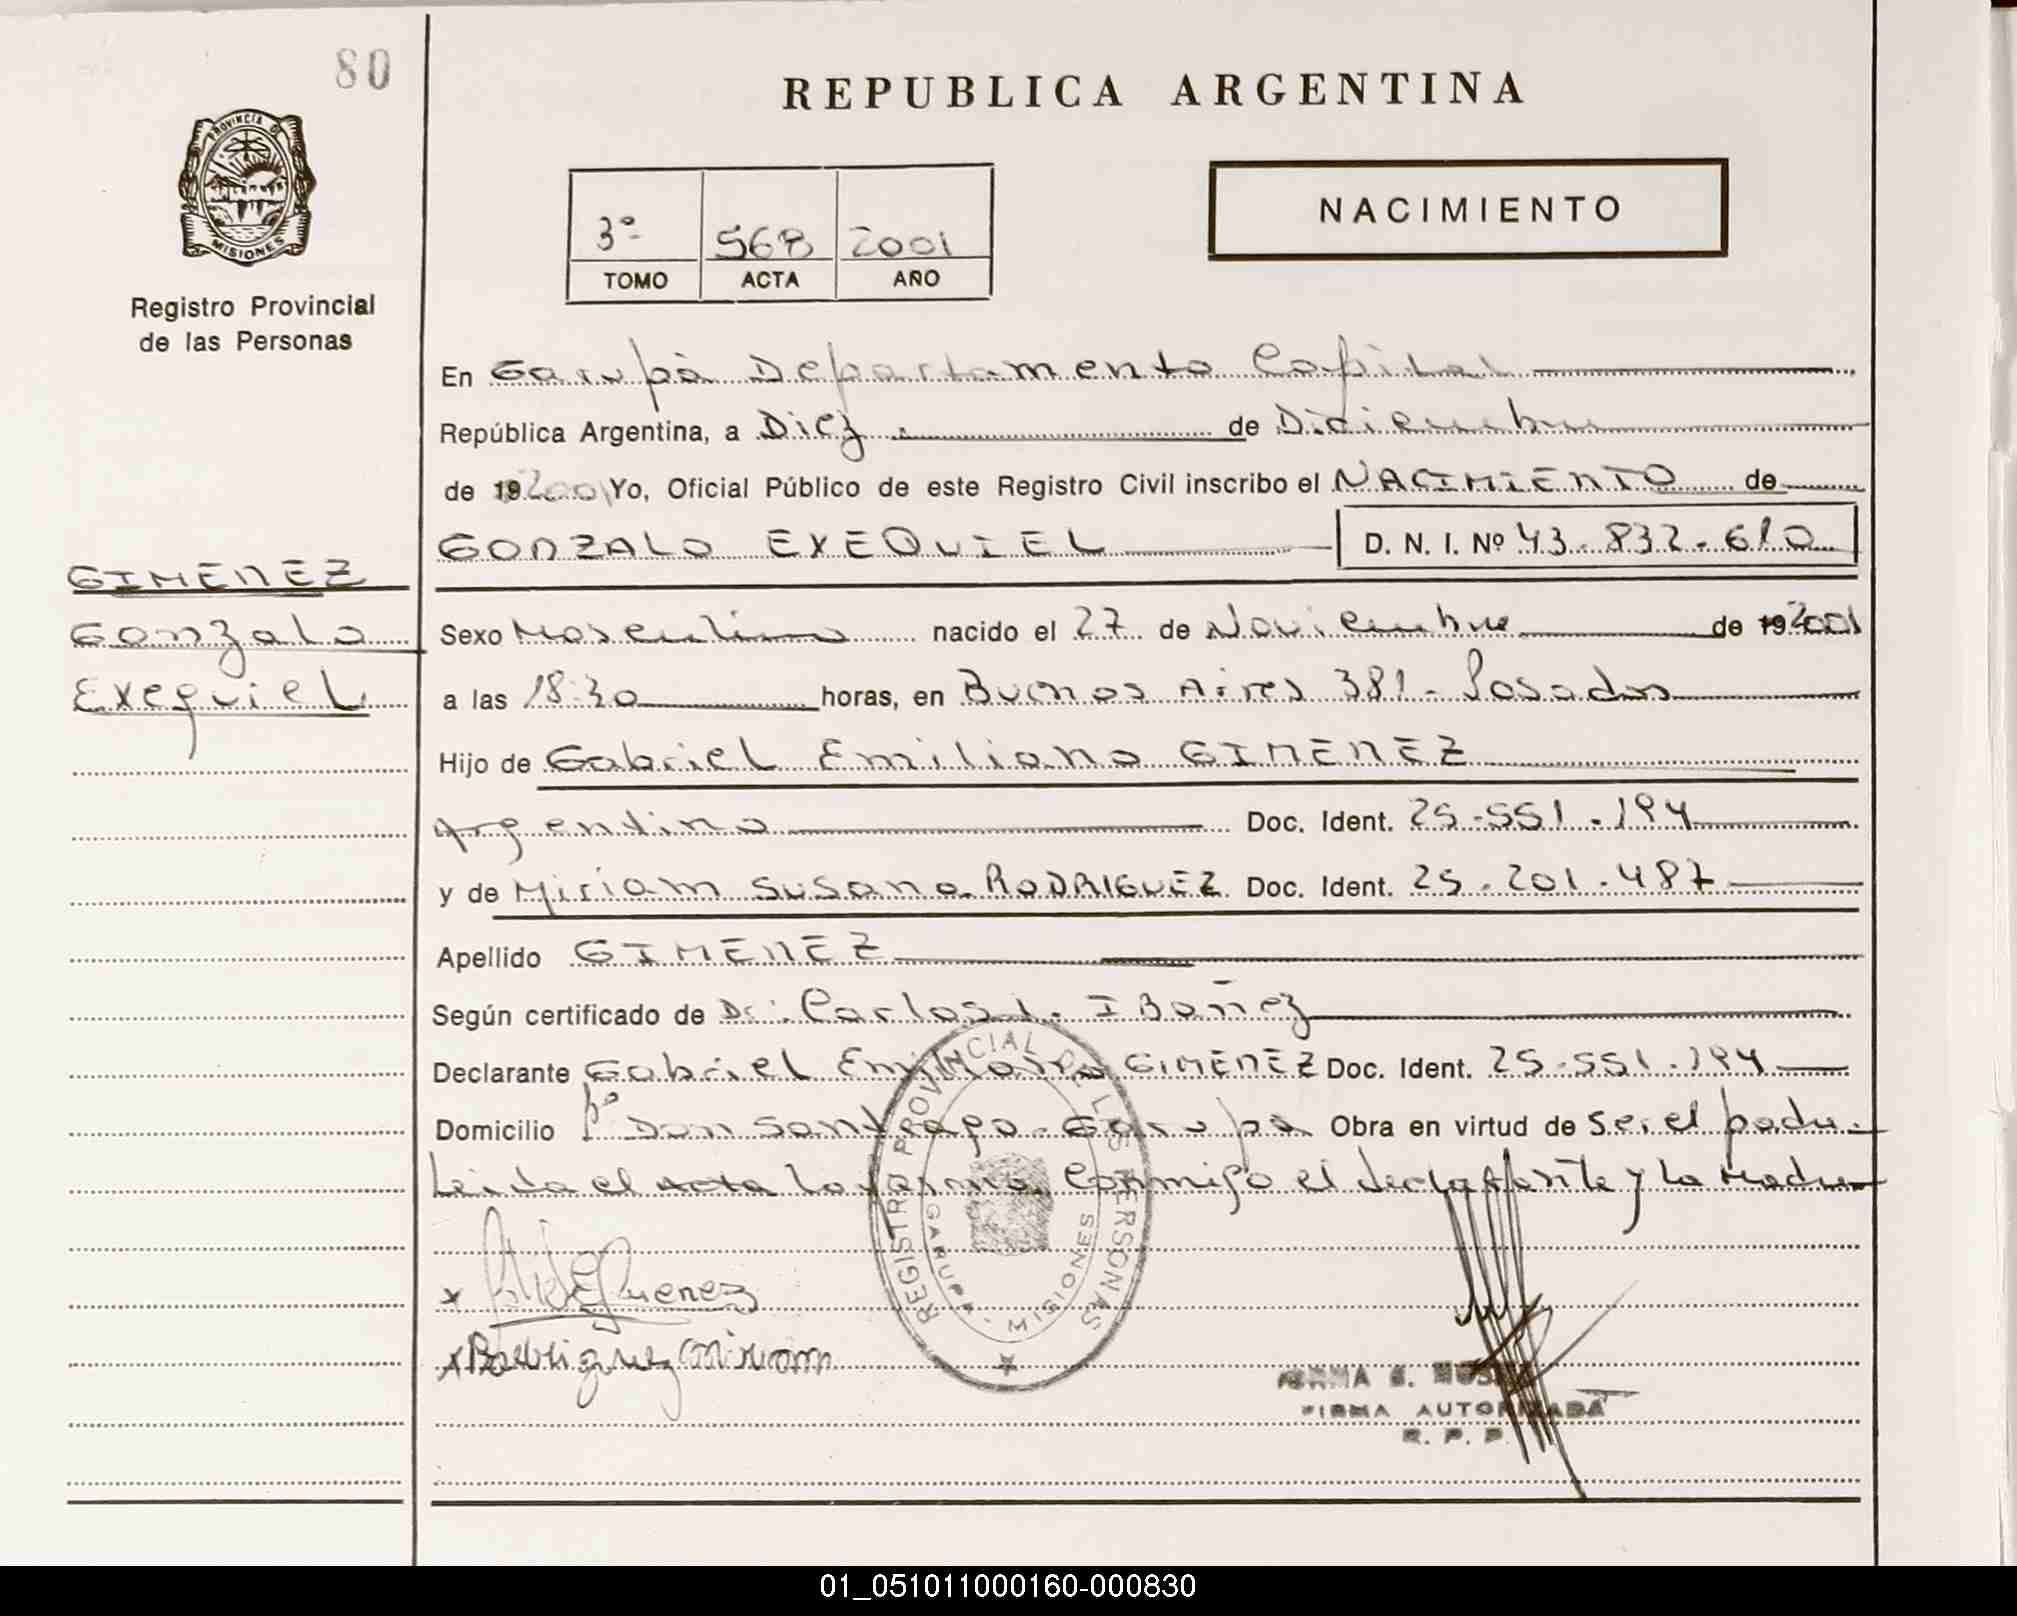 80
REPUBLICA ARGENTINA
PROVINCIA DE
MISIONES
Registro Provincial
de las Personas
3º 568 2001
TOMO ACTA AÑO
NACIMIENTO
En Garupá Departamento Capital
República Argentina, a Diez de Diciembre
de 19 2001 Yo, Oficial Público de este Registro Civil inscribo el NACIMIENTO de
GONZALO EXEQUIEL D. N. I. Nº 43.832.610
GIMENEZ
Gonzalo
Exequiel
Sexo Masculino nacido el 27 de Noviembre de 19 2001
a las 18:30 horas, en Buenos Aires 381 - Posadas
Hijo de Gabriel Emiliano GIMENEZ
Argentino Doc. Ident. 25.551.194
y de Miriam Susana RODRIGUEZ Doc. Ident. 25.201.487
Apellido GIMENEZ
Según certificado de Dr. Carlos L. IBAÑEZ
Declarante Gabriel Emiliano GIMENEZ Doc. Ident. 25.551.194
Domicilio Bº Don Santiago - Garupá Obra en virtud de Ser el padre.
Leida el acta la firma conmigo el declarante y la Madre
REGISTRO PROVINCIAL DE LAS PERSONAS
GARUPA - MISIONES
x Gimenez
x Rodriguez Miriam
FIRMA AUTORIZADA
R. P. P.
01_051011000160-000830